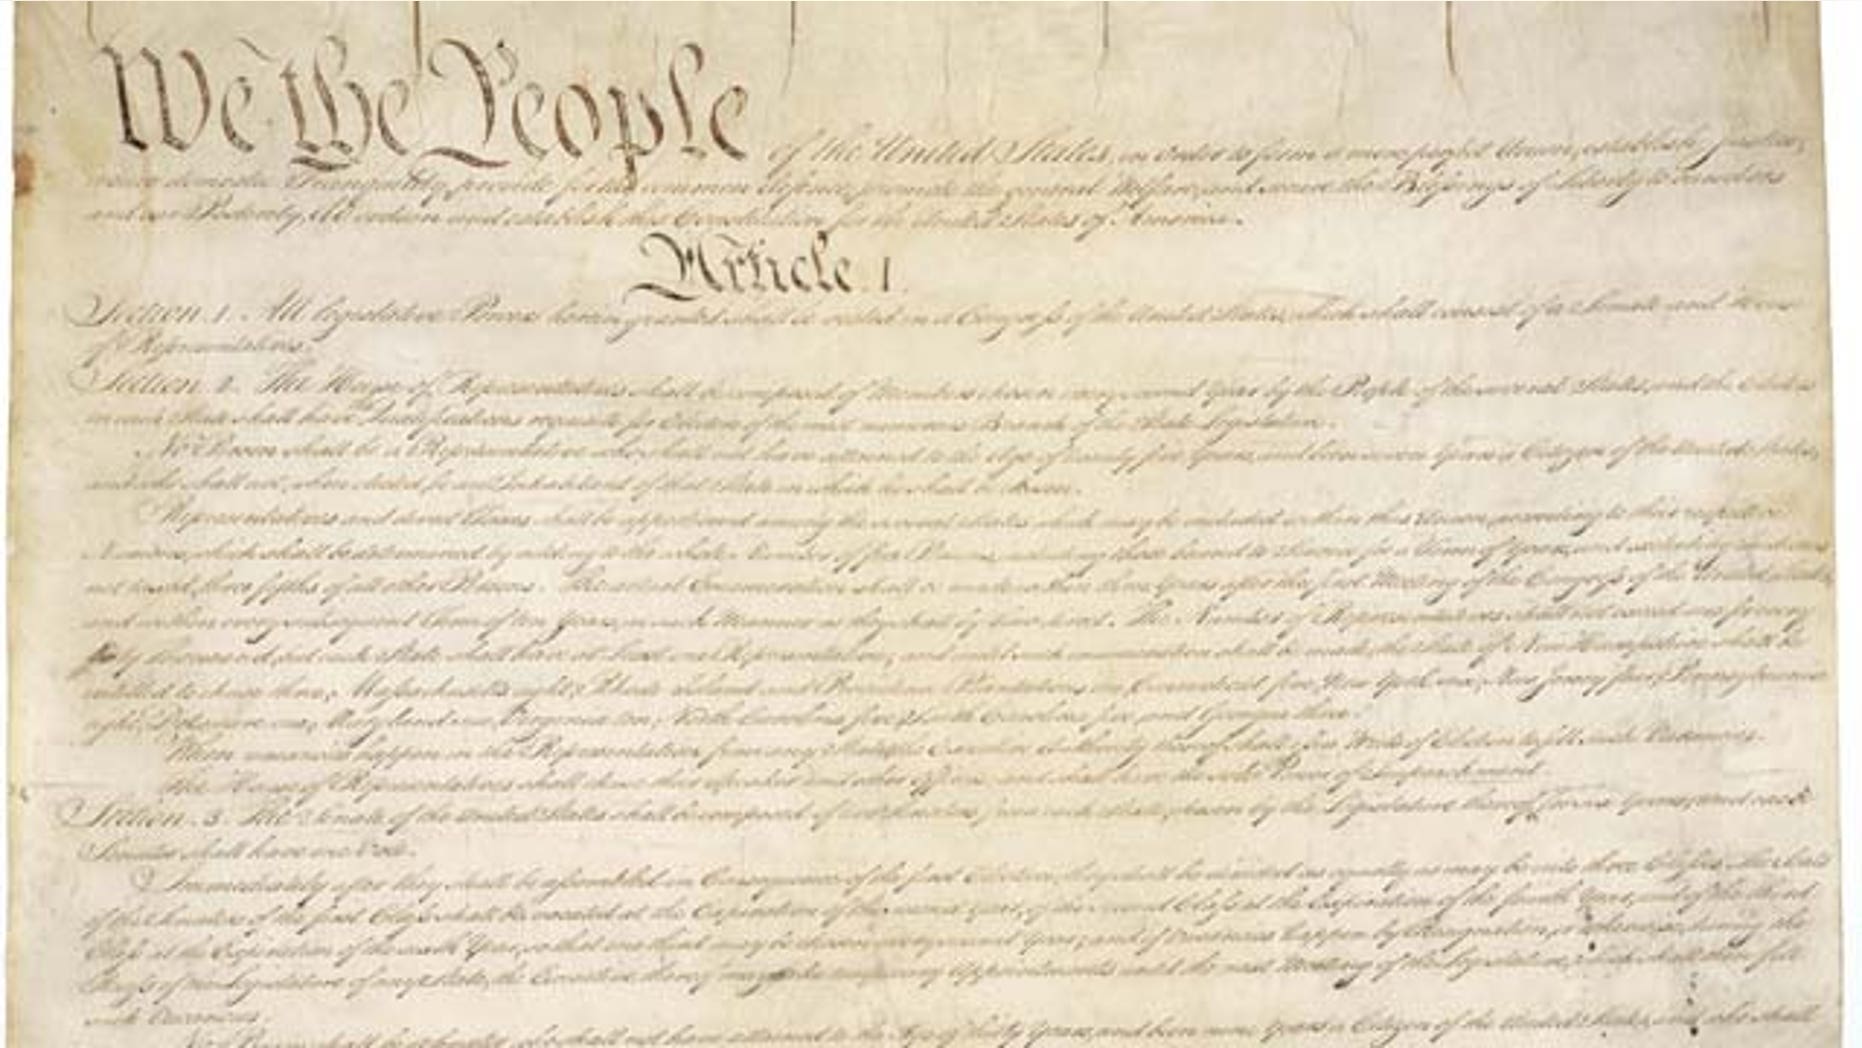 We the People of the United States, in Order to form a more perfect Union, establish Justice,
insure domestic Tranquility, provide for the common defence, promote the general Welfare, and secure the Blessings of Liberty to ourselves
and our Posterity, do ordain and establish this Constitution for the United States of America.
Article. I.
Section. 1. All legislative Powers herein granted shall be vested in a Congress of the United States, which shall consist of a Senate and House
of Representatives.
Section. 2. The House of Representatives shall be composed of Members chosen every second Year by the People of the several States, and the Electors
in each State shall have Qualifications requisite for Electors of the most numerous Branch of the State Legislature.
No Person shall be a Representative who shall not have attained to the Age of twenty five Years, and been seven Years a Citizen of the United States,
and who shall not, when elected, be an Inhabitant of that State in which he shall be chosen.
Representatives and direct Taxes shall be apportioned among the several States which may be included within this Union, according to their respective
Numbers, which shall be determined by adding to the whole Number of free Persons, including those bound to Service for a Term of Years, and excluding Indians
not taxed, three fifths of all other Persons. The actual Enumeration shall be made within three Years after the first Meeting of the Congress of the United States,
and within every subsequent Term of ten Years, in such Manner as they shall by Law direct. The Number of Representatives shall not exceed one for every
thirty Thousand, but each State shall have at Least one Representative; and until such enumeration shall be made, the State of New Hampshire shall be
entitled to chuse three, Massachusetts eight, Rhode Island and Providence Plantations one, Connecticut five, New York six, New Jersey four, Pennsylvania
eight, Delaware one, Maryland six, Virginia ten, North Carolina five, South Carolina five, and Georgia three.
When vacancies happen in the Representation from any State, the Executive Authority thereof shall issue Writs of Election to fill such Vacancies.
The House of Representatives shall chuse their Speaker and other Officers; and shall have the sole Power of Impeachment.
Section. 3. The Senate of the United States shall be composed of two Senators from each State, chosen by the Legislature thereof, for six Years; and each
Senator shall have one Vote.
Immediately after they shall be assembled in Consequence of the first Election, they shall be divided as equally as may be into three Classes. The Seats
of the Senators of the first Class shall be vacated at the Expiration of the second Year, of the second Class at the Expiration of the fourth Year, and of the third
Class at the Expiration of the sixth Year, so that one third may be chosen every second Year; and if Vacancies happen by Resignation, or otherwise, during the
Recess of the Legislature of any State, the Executive thereof may make temporary Appointments until the next Meeting of the Legislature, which shall then fill
such Vacancies.
No Person shall be a Senator who shall not have attained to the Age of thirty Years, and been nine Years a Citizen of the United States, and who shall